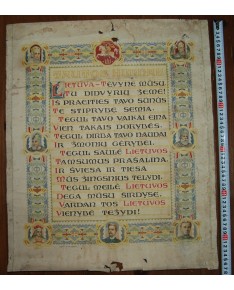 LIETUVA-TĖVYNĖ MŪSŲ
TU DIDVYRIŲ ŽEME!
IŠ PRAEITIES TAVO SŪNŪS
TE STIPRYBĘ SEMIA.
TEGUL TAVO VAIKAI EINA
VIEN TAKAIS DORYBĖS
TEGUL DIRBA TAVO NAUDAI
IR ŽMONIŲ GĖRYBEI.
TEGUL SAULĖ LIETUVOS
TAMSUMUS PRAŠALINA,
IR ŠVIESA IR TIESA
MŪS ŽINGSNIUS TELYDI.
TEGUL MEILĖ LIETUVOS
DEGA MŪSŲ ŠIRDYSE,
VARDAN TOS LIETUVOS
VIENYBĖ TEŽYDI!